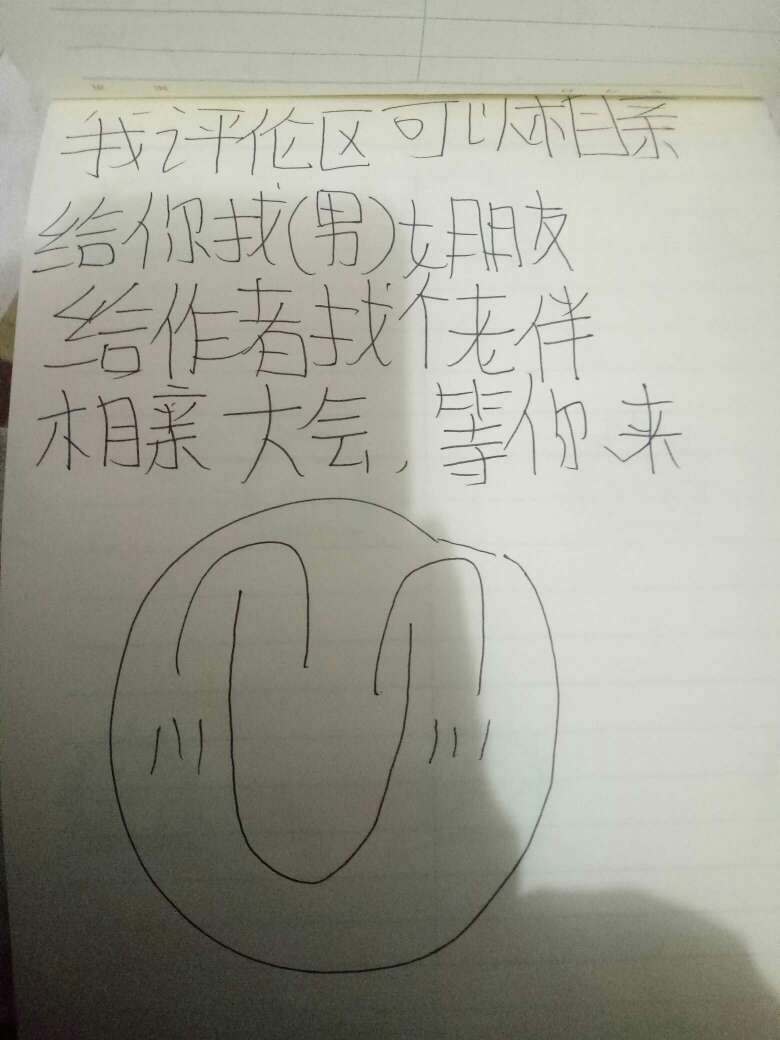 我评伦区可以相亲
给你找(男)女朋友
给作者找个老伴
相亲大会,等你来